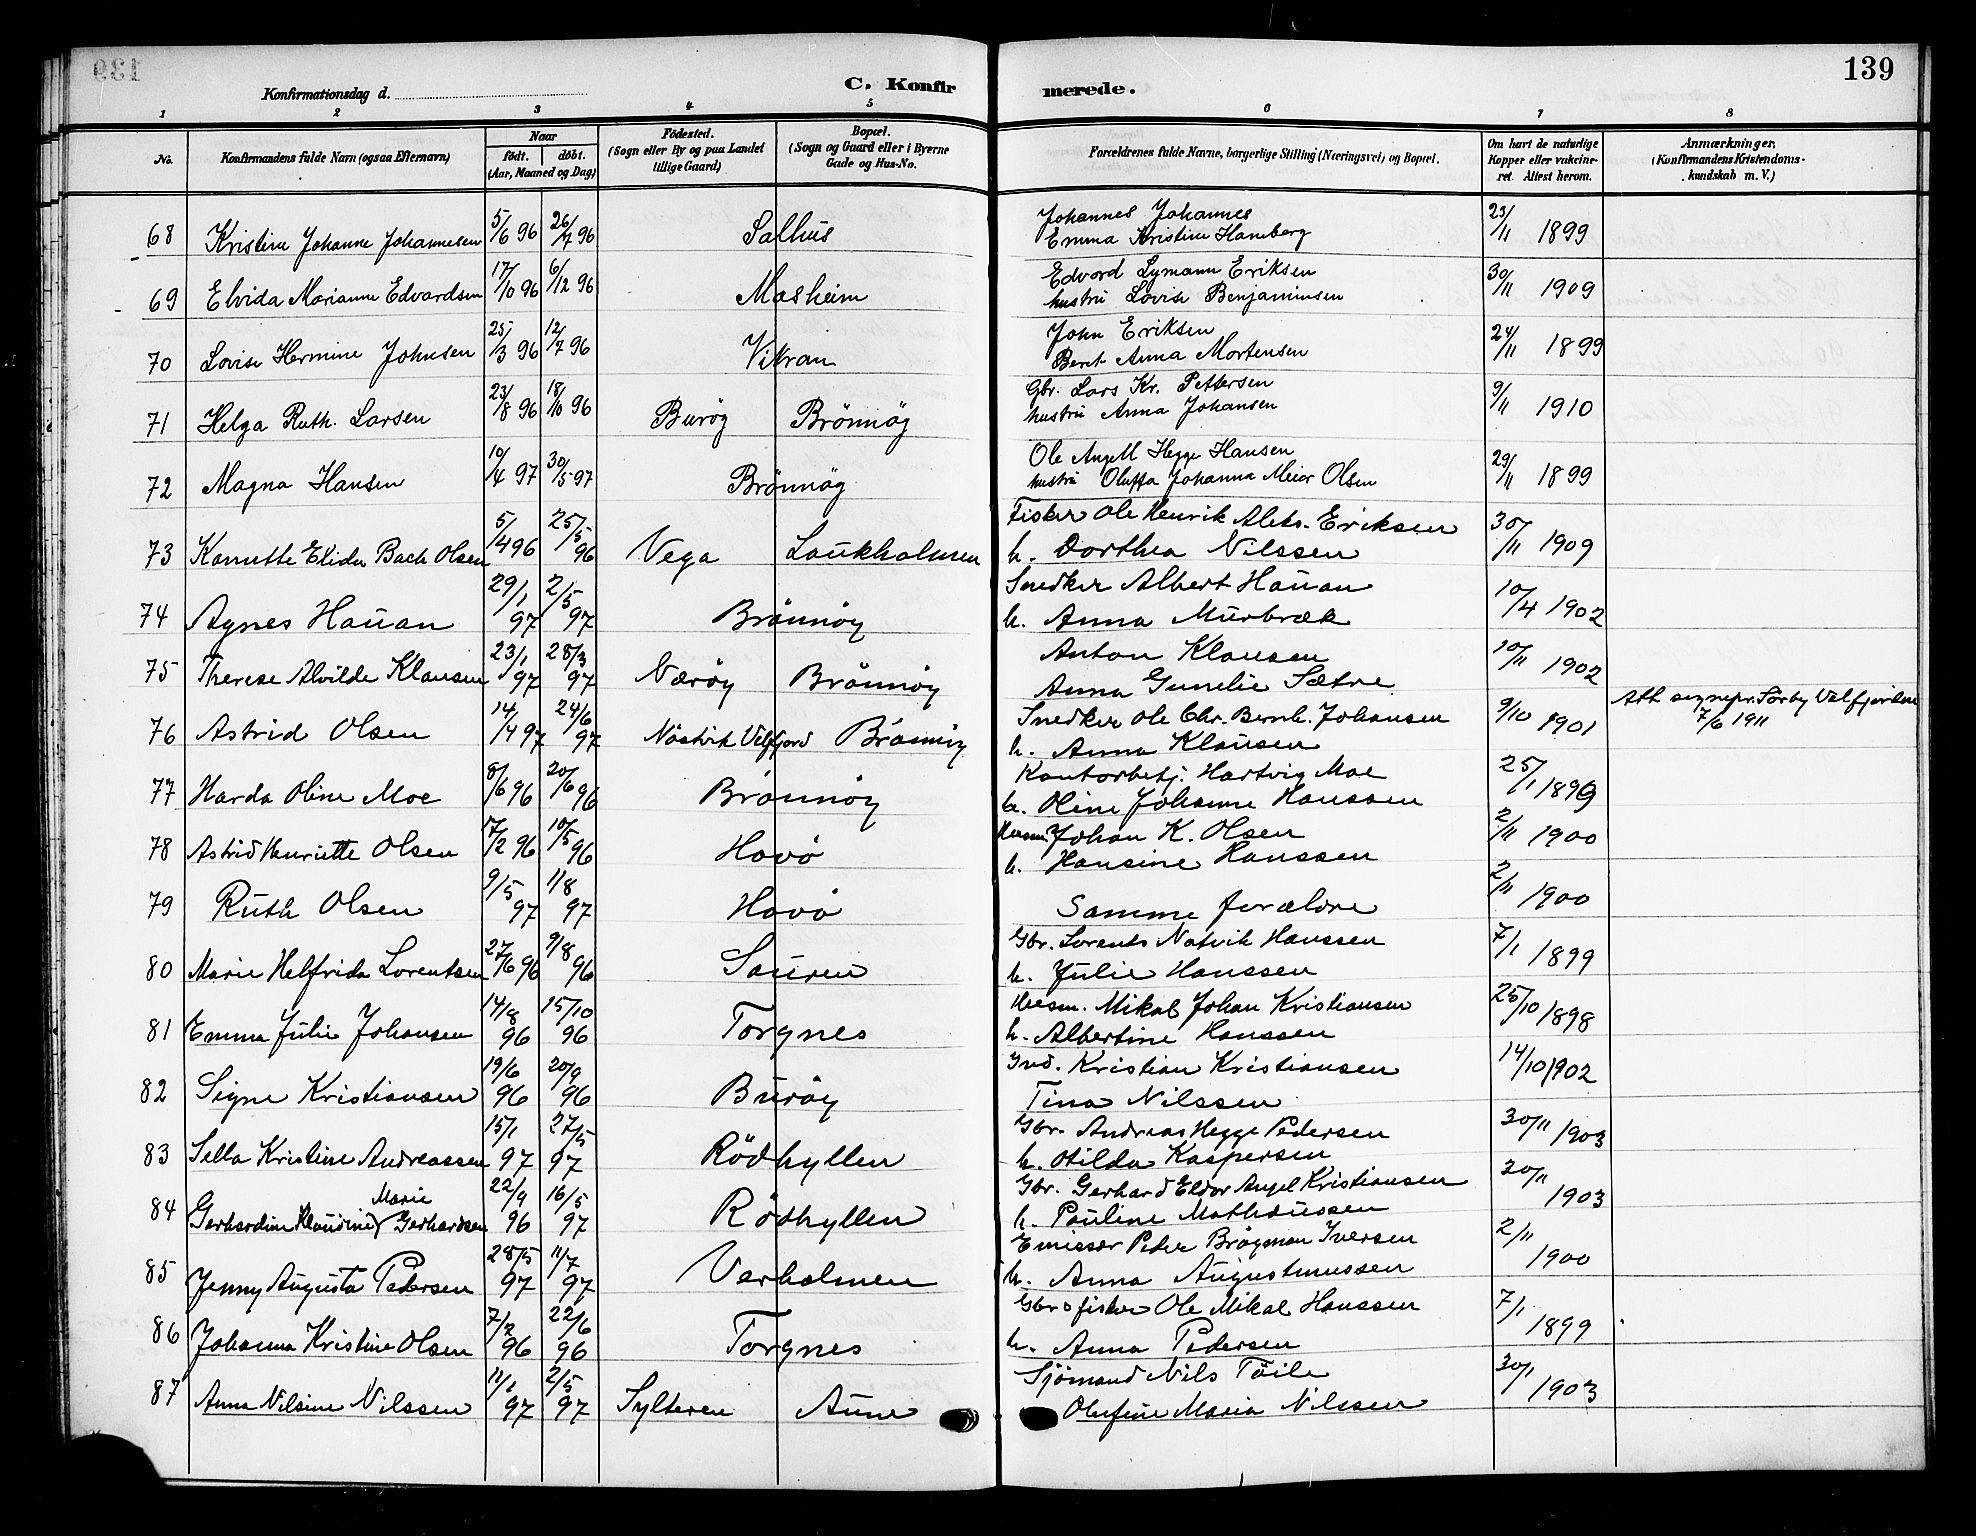 139
Konfirmationsdag d.
C. Konfirmerede.
1 2 3 4 5 6 7 8
No. Konfirmandens fulde Navn (ogsaa Efternavn) Naar født. døbt. (Aar, Maaned og Dag) Fødested. (Sogn eller By og paa Landet tillige Gaard) Bopæl. (Sogn og Gaard eller i Byerne Gade og Hus-No. Forældrenes fulde Navne, borgerlige Stilling (Næringsvei) og Bopæl. Om havt de naturlige Kopper eller vakcineret. Attest herom. Anmærkninger. (Konfirmandens Kristendomskundskab m. V.)
68 Kristine Johanne Johannesen 5/6 96 26/7 96 Salhus Johannes Johannes 23/11 1899
Emma Kristine Hamberg
69 Elvida Marianne Edvardsen 17/10 96 6/12 96 Mosheim Edvard Lymann Eriksen 30/11 1909
hustru Lovise Benjaminsen
70 Lovise Hermine Johnsen 25/3 96 12/7 96 Vikran John Eriksen 24/11 1899
Beret Anna Mortensen
71 Helga Ruth. Larsen 23/8 96 18/10 96 Burøy Brönnöy Gbr. Lars Kr. Pettersen 9/11 1910
hustru Anna Johansen
72 Magna Hansen 10/4 97 30/5 97 Brönnöy Ole Angell Hegge Hansen 29/11 1899
hustru Oluffa Johanna Meier Olsen
73 Kanutte Elida Bach Olsen 5/4 96 25/5 96 Vega Laukholmen Fisker Ole Henrik Aleks. Eriksen 30/11 1909
h. Dorthea Nilssen
74 Agnes Hauan 29/1 97 2/5 97 Brönnöy Snedker Albert Hauan 10/4 1902
h. Anna Murbræk
75 Therese Alvilde Klausen 23/1 97 28/3 97 Nærøy Brönnöy Anton Klausen 10/11 1902
Anna Gunelie Sætre
76 Astrid Olsen 14/4 97 24/6 97 Nöstvik Velfjord Brönnöy Snedker Ole Chr. Bernh. Johansen 9/10 1901 Att sognepr. Sørby Velfjorden 7/6 1911
h. Anna Klausen
77 Harda Oline Moe 8/6 96 20/6 96 Brönnöy Kontorbetj. Hartvig Moe 25/1 1899
h. Oline Johanne Hanssen
78 Astrid Henriette Olsen 17/2 96 10/5 96 Havö Husm Johan K. Olsen 2/11 1900
h. Hansine Hanssen
79 Ruth Olsen 9/5 97 1/8 97 Havö Samme forældre 2/11 1900
80 Marie Helfrida Lorentsen 27/6 96 9/8 96 Sauren Gbr. Lorents Natvik Hanssen 7/1 1899
h. Julie Hanssen
81 Emma Julie Johansen 14/8 96 15/10 96 Torgnes Husm. Mikal Johan Kristiansen 25/10 1898
h. Albertine Hanssen
82 Signe Kristiansen 19/6 96 20/9 96 Buröy Ind. Kristian Kristiansen 14/10 1902
Tina Nilssen
83 Sella Kristine Andreassen 15/1 97 27/5 97 Rödhyllen Gbr. Andreas Hegge Pedersen 30/11 1903
h. Otilda Kaspersen
84 Gerhardine Klaudine Marie Gerhardsen 22/9 96 16/5 97 Rödhyllen Gbr. Gerhard Eldor Angel Kristiansen 30/11 1903
h. Pauline Mathæussen
85 Jenny Augusta Pedersen 28/5 97 11/7 97 Verholmen Emissær Peder Brögman Iversen 2/11 1900
h. Anna Augustinussen
86 Johanna Kristine Olsen 7/2 96 22/6 96 Torgnes Gbr o fisker Ole Mikal Hanssen 7/1 1899
h. Anna Pedersen
87 Anna Nilsine Nilssen 11/1 97 2/5 97 Sylteren Aune Sjömand Nils Töile 30/1 1903
Olufine Maria Nilssen